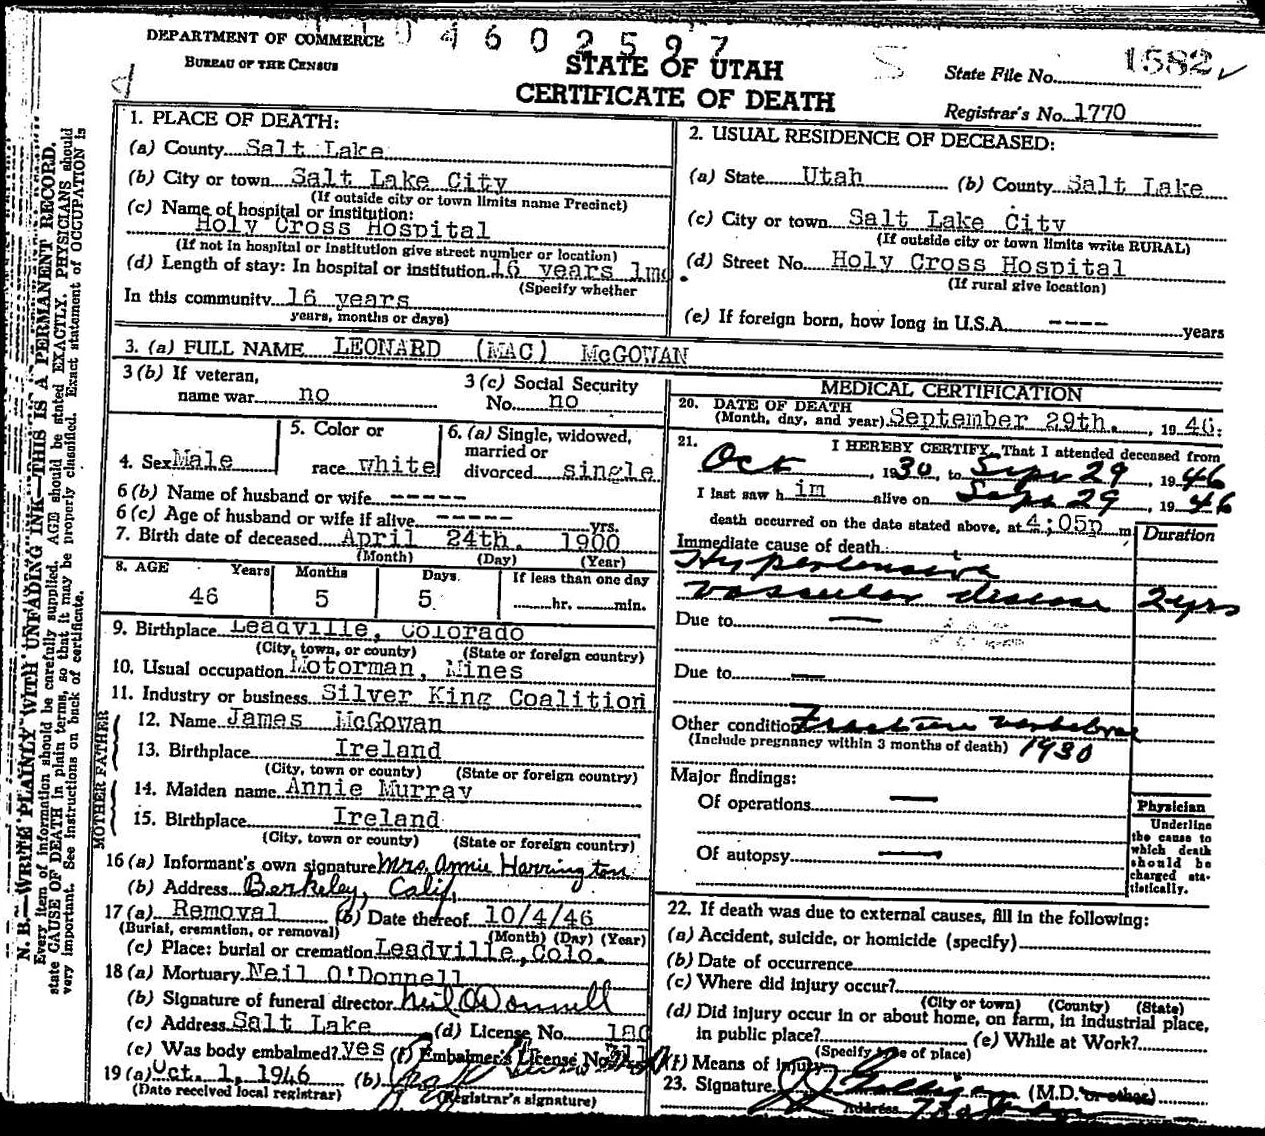 DEPARTMENT OF COMMERCE
BUREAU OF THE CENSUS
04602597
STATE OF UTAH
CERTIFICATE OF DEATH
S
State File No. 1582
Registrar's No. 1770
N. B.—WRITE PLAINLY WITH UNFADING INK—THIS IS A PERMANENT RECORD.
Every item of information should be carefully supplied. AGE should be stated EXACTLY. PHYSICIANS should
state CAUSE OF DEATH in plain terms, so that it may be properly classified. Exact statement of OCCUPATION is
very important. See instructions on back of certificate.
1. PLACE OF DEATH:
(a) County Salt Lake
(b) City or town Salt Lake City
(If outside city or town limits name Precinct)
(c) Name of hospital or institution:
Holy Cross Hospital
(If not in hospital or institution give street number or location)
(d) Length of stay: In hospital or institution 16 years 1mo
(Specify whether
In this community 16 years
years, months or days)
2. USUAL RESIDENCE OF DECEASED:
(a) State Utah (b) County Salt Lake
(c) City or town Salt Lake City
(If outside city or town limits write RURAL)
(d) Street No. Holy Cross Hospital
(If rural give location)
(e) If foreign born, how long in U.S.A. ---- years
3. (a) FULL NAME LEONARD (MAC) McGOWAN
3 (b) If veteran, name war no
3 (c) Social Security No. no
4. Sex Male
5. Color or race white
6. (a) Single, widowed, married or divorced single
6 (b) Name of husband or wife -----
6 (c) Age of husband or wife if alive ----- yrs.
7. Birth date of deceased April 24th. 1900
(Month) (Day) (Year)
8. AGE Years Months Days If less than one day
46 5 5 hr. min.
9. Birthplace Leadville, Colorado
(City, town, or county) (State or foreign country)
10. Usual occupation Motorman, Mines
11. Industry or business Silver King Coalition
FATHER
12. Name James McGowan
13. Birthplace Ireland
(City, town or county) (State or foreign country)
MOTHER
14. Maiden name Annie Murray
15. Birthplace Ireland
(City, town or county) (State or foreign country)
16 (a) Informant's own signature Mrs. Annie Harrington
(b) Address Berkeley, Calif.
17 (a) Removal (b) Date thereof 10/4/46
(Burial, cremation, or removal) (Month) (Day) (Year)
(c) Place: burial or cremation Leadville, Colo.
18 (a) Mortuary Neil O'Donnell
(b) Signature of funeral director Neil O'Donnell
(c) Address Salt Lake (d) License No.
(e) Was body embalmed? yes (f) Embalmer's License No.
19 (a) Oct. 1, 1946 (b)
(Date received local registrar) (Registrar's signature)
MEDICAL CERTIFICATION
20. DATE OF DEATH
(Month, day, and year) September 29th. , 19 46:
21. I HEREBY CERTIFY, That I attended deceased from
Oct , 19 30, to Sept 29 , 19 46
I last saw h im alive on Sept 29 , 19 46
death occurred on the date stated above, at 4:05p m
Duration
Immediate cause of death
Hypertensive
vascular disease 2 yrs
Due to —
Due to —
Other condition Fracture vertebrae
(Include pregnancy within 3 months of death) 1930
Major findings:
Of operations —
Of autopsy —
Physician
Underline
the cause to
which death
should be
charged sta-
tistically.
22. If death was due to external causes, fill in the following:
(a) Accident, suicide, or homicide (specify)
(b) Date of occurrence
(c) Where did injury occur?
(City or town) (County) (State)
(d) Did injury occur in or about home, on farm, in industrial place,
in public place? (e) While at Work?
(Specify type of place)
(f) Means of injury
23. Signature (M.D. or other)
Address